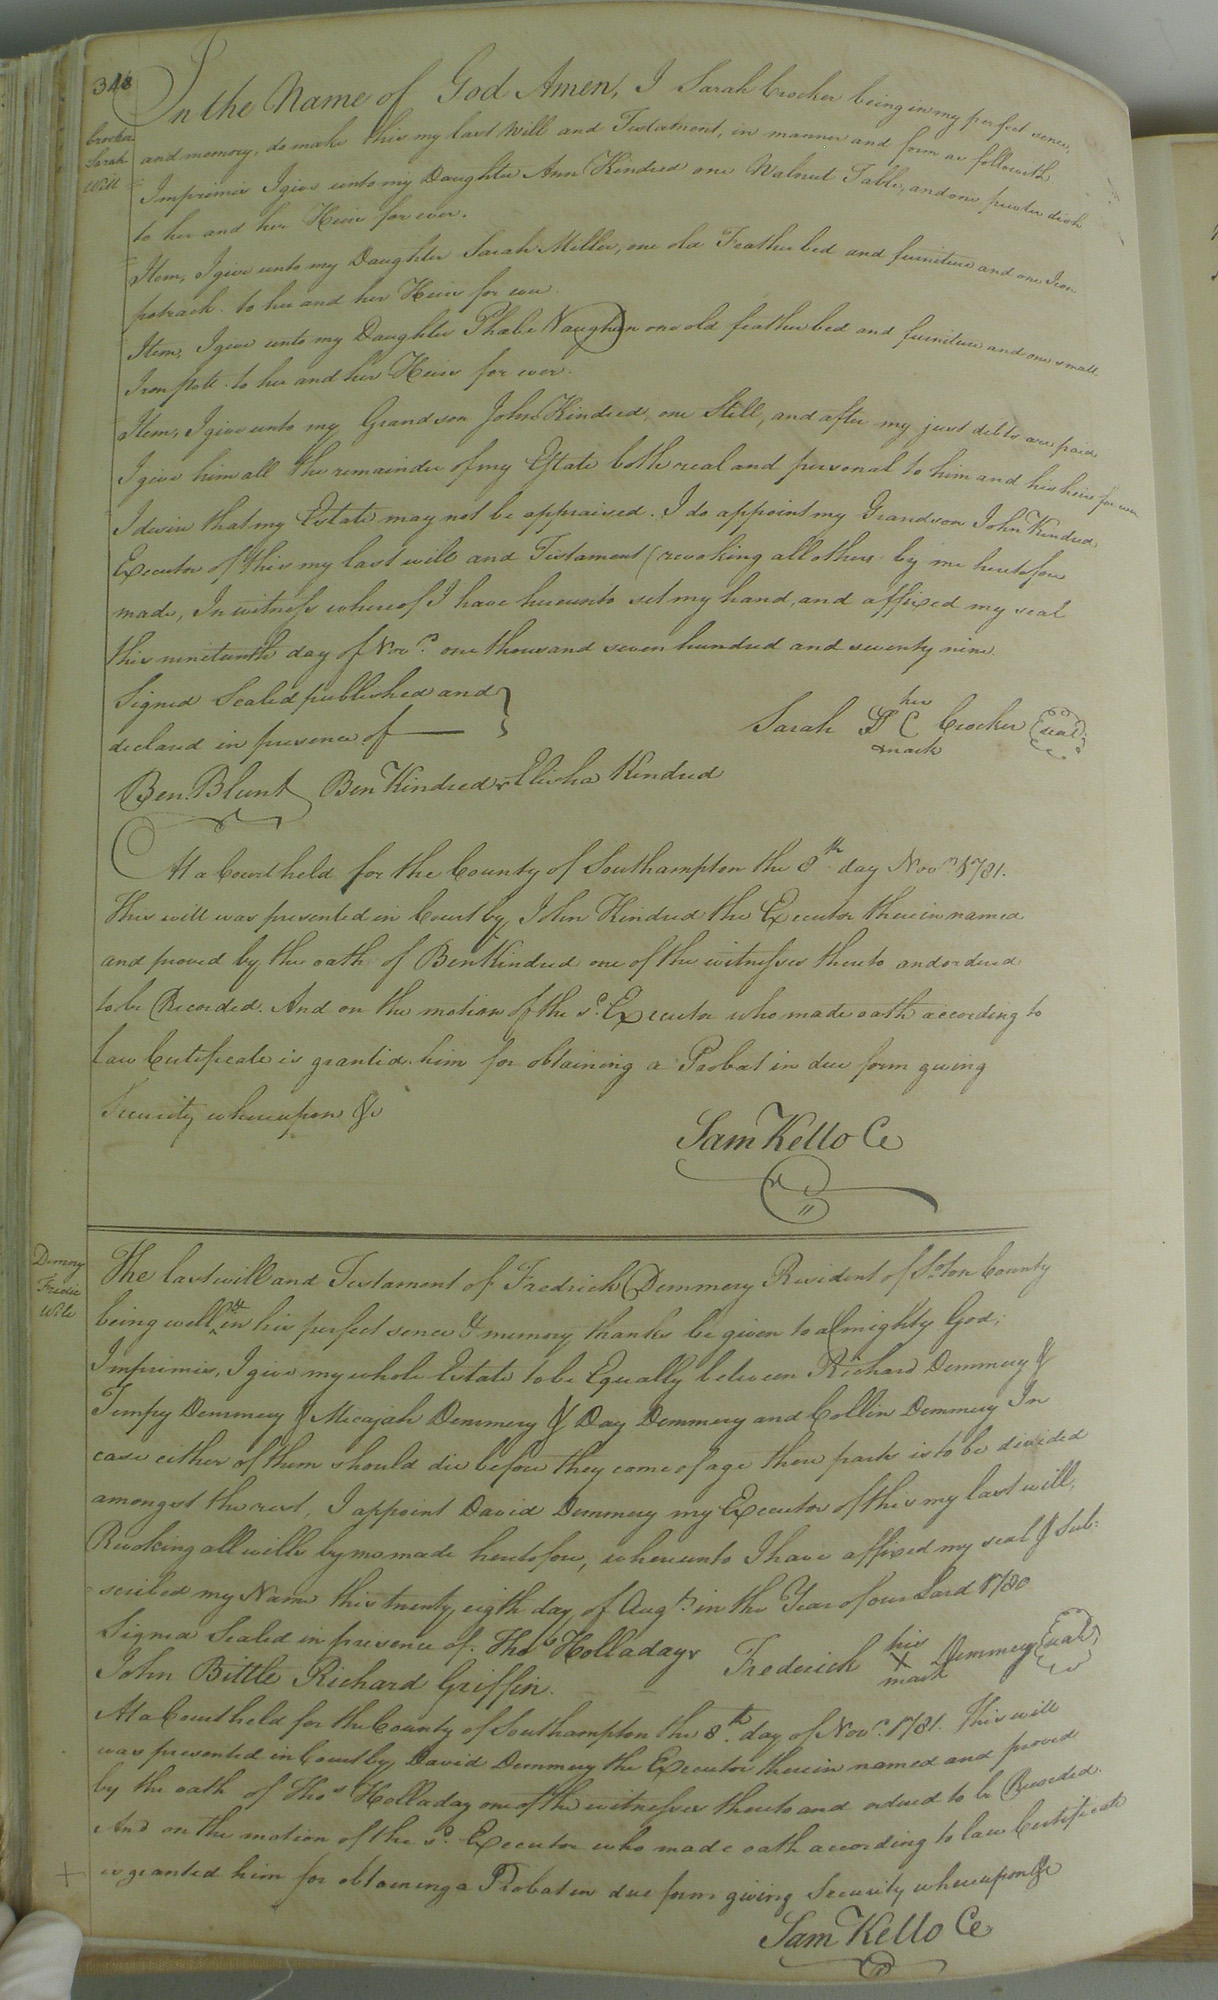 348
Crocker
Sarah
Will
In the Name of God Amen, I Sarah Crocker being in my perfect sence,
and memory, do make this my last Will and Testament, in manner and form as followith
Imprimis I give unto my Daughter Ann Kindred one Walnut Table, and one pewter dish
to her and her Heirs for ever.
Item, I give unto my Daughter Sarah Miller, one old Feather bed and furniture and one Iron
potrack. to her and her Heirs for ever.
Item, I give unto my Daughter Phebe Vaughan one old feather bed and furniture and one small
Iron pott. to her and her Heirs for ever.
Item, I give unto my Grandson John Kindred, one Still, and after my just debts are paid
I give him all the remainder of my Estate both real and personal to him and his heirs for ever
I desire that my Estate may not be appraised. I do appoint my Grandson John Kindred
Executor of this my last will and Testament (revoking all others by me heretofore
made, In witness whereof I have hereunto set my hand, and affixed my seal
this nineteenth day of Novr. one thousand seven hundred and seventy nine
Signed Sealed published and
declared in presence of
her
Sarah C Crocker seal
mark
Ben. Blunt Ben Kindred Elisha Kindred
At a Court held for the County of Southampton the 8th day Novr. 1781.
This will was presented in Court by John Kindred the Executor therein named
and proved by the oath of Ben Kindred one of the witnesses thereto and ordered
to be Recorded. And on the motion of the sd. Executor who made oath according to
law Certificate is granted him for obtaining a Probat in due form giving
Security whereupon &c
Sam Kello Cc
Demmery
Fredric
Will
The last will and Testament of Fredrick Demmery Resident of Soton County
being well & in his perfect sence & memory thanks be given to almighty God;
Imprimis, I give my whole Estate to be Equally between Richard Demmery &
Tempy Demmery & Micajah Demmery & Day Demmery and Collin Demmery In
case either of them should die before they come of age there parts is to be divided
amongst the rest, I appoint David Demmery my Executor of this my last will,
Revoking all wills by me made heretofore, whereunto I have affixed my seal & Sub:
=scribed my Name this twenty eigth day of Augt. in the Year of our Lord 1780
Signed Sealed in presence of. Thos. Holladay
his
Frederick X Demmery seal
mark
John Bittle Richard Griffin.
At a Court held for the County of Southampton the 8th. day of Novr. 1781. This will
was presented in Court by David Demmery the Executor therein named and proved
by the oath of Thos. Holladay one of the witnesses thereto and ordered to be Recorded.
And on the motion of the sd. Executor who made oath according to law Certificate
is granted him for obtaining a Probat in due form giving Security whereupon &c
Sam Kello Cc